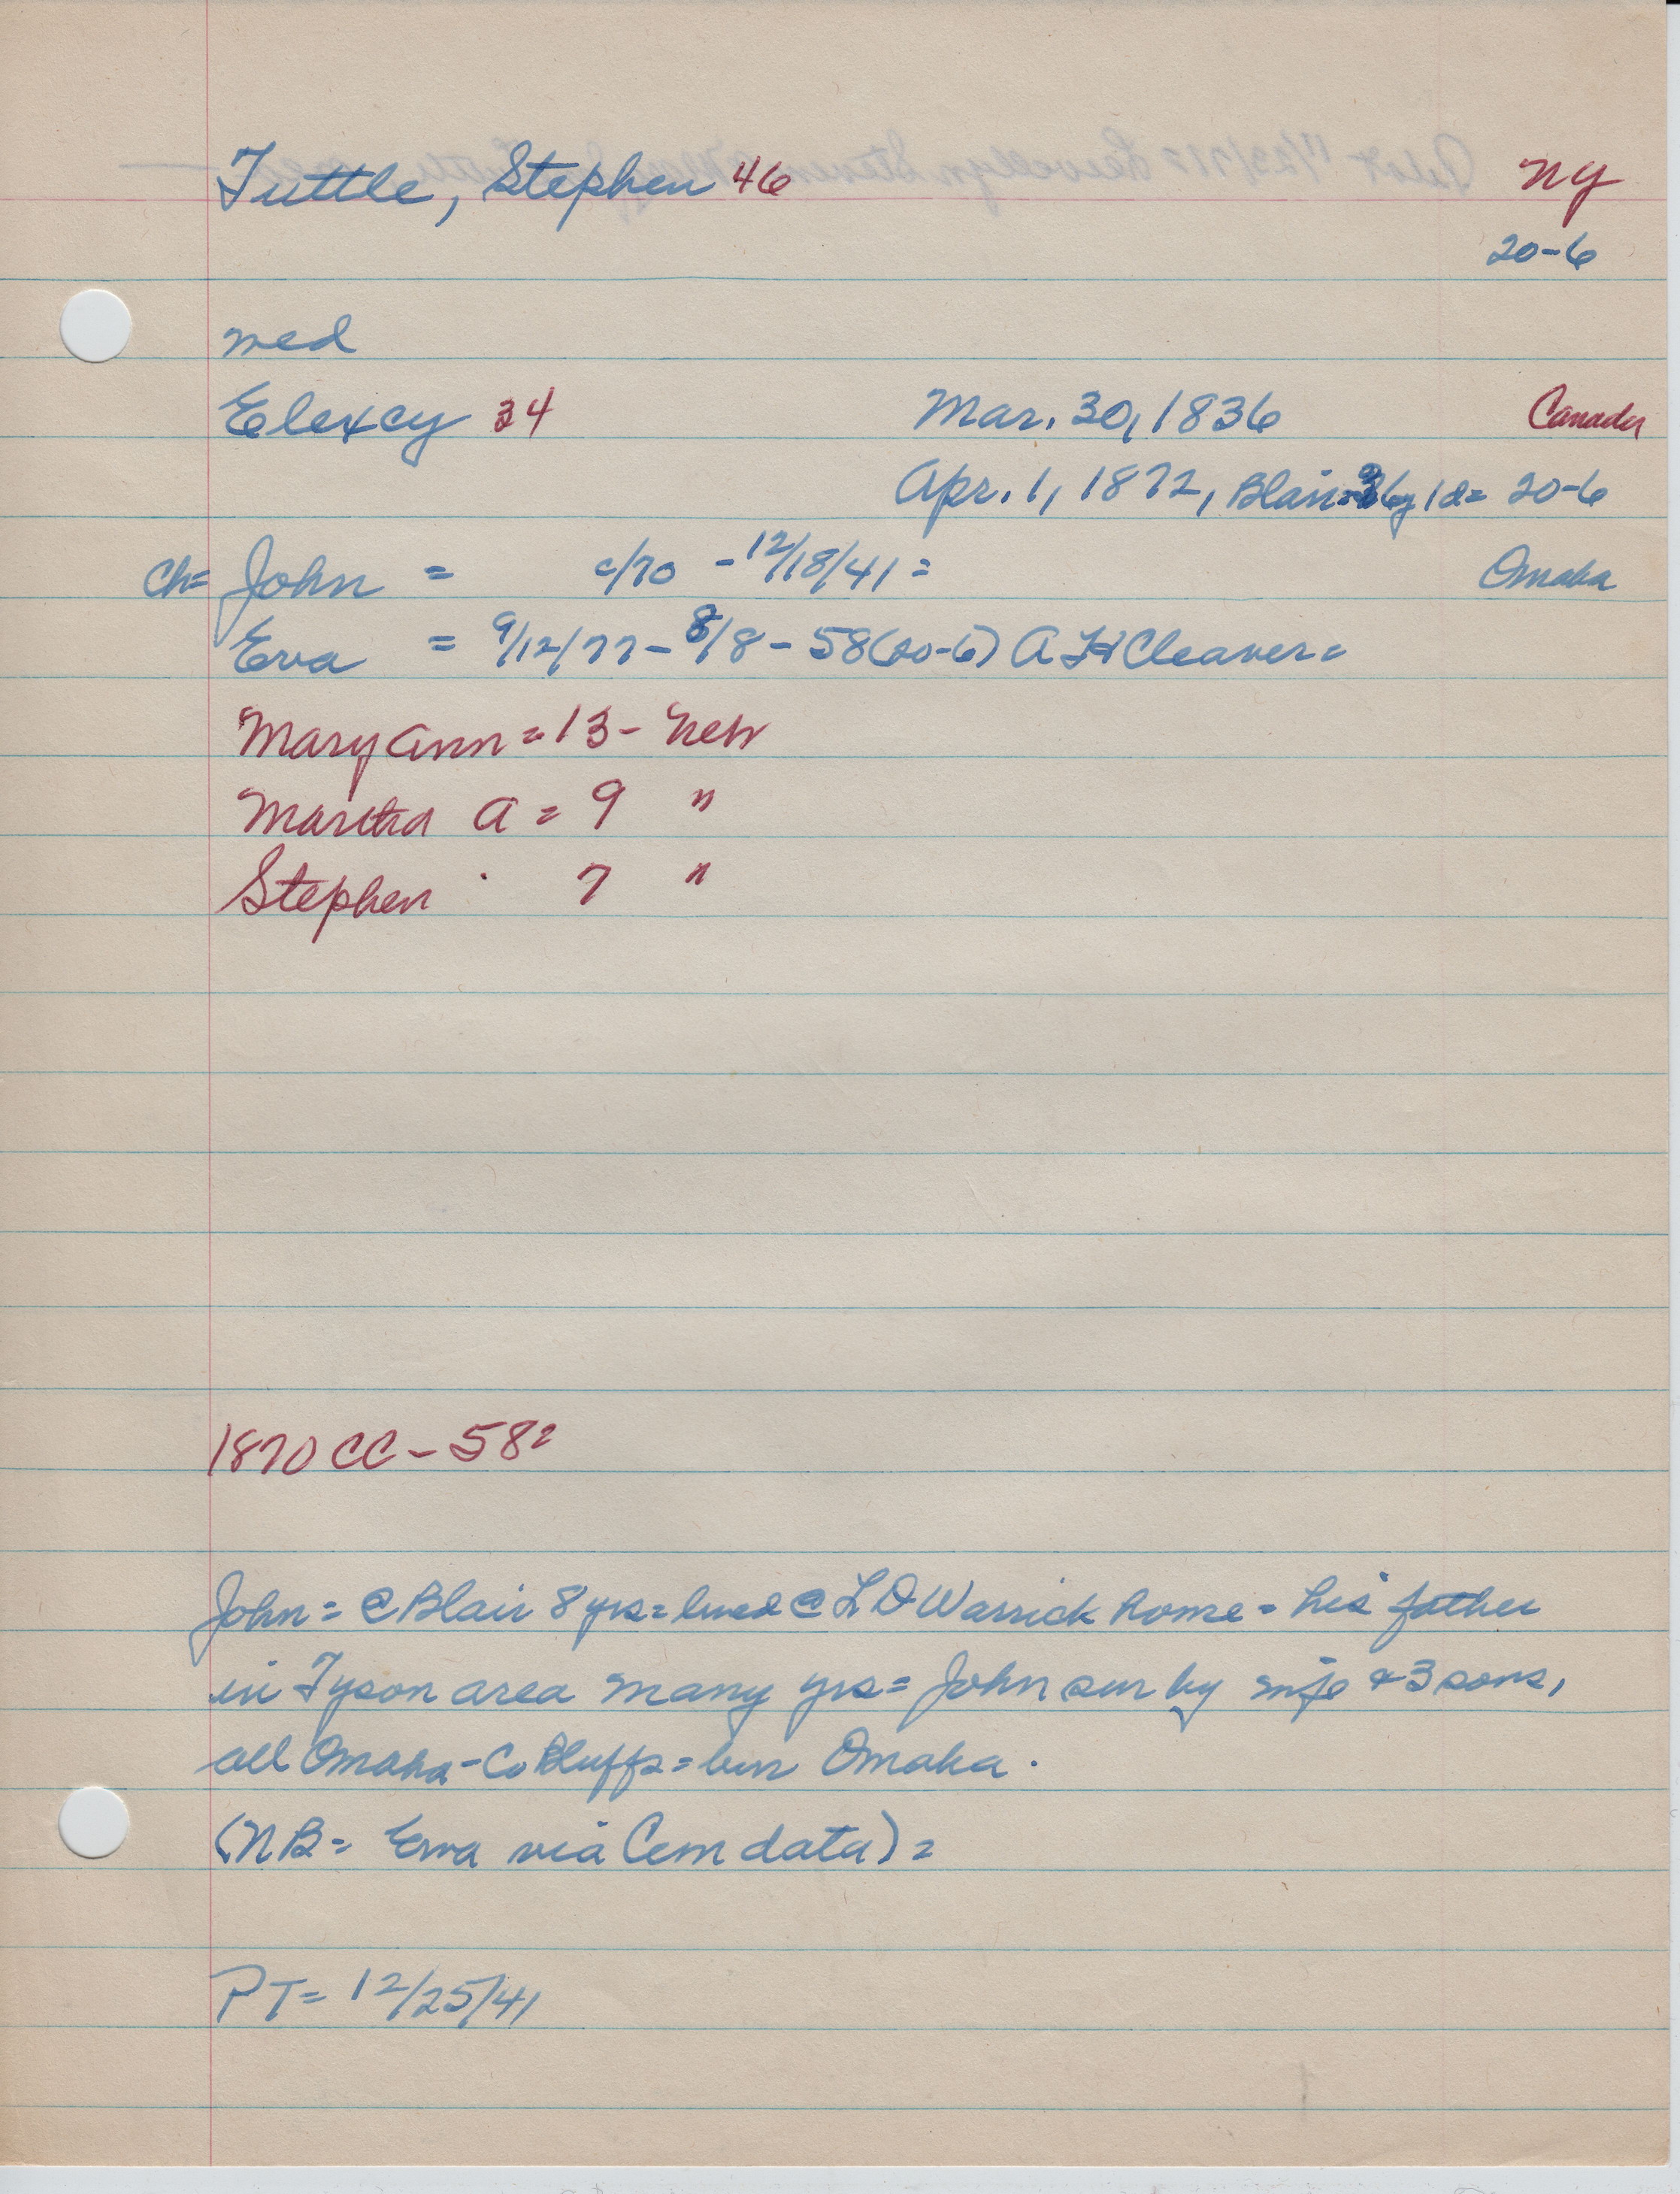 Tuttle, Stephen 46 NY
20-6
med
Elexcy 34 Mar. 30, 1836 Canada
Apr. 1, 1872, Blair=36y 1d= 20-6
ch= John = c/70 - 12/18/41 = Omaha
Eva = 9/12/77 - 8/8 - 58 (20-6) A H Cleaver=
Mary Ann = 13 - Neb
Martha A = 9 "
Stephen 7 "
1870 CC - 58=
John = @ Blair 8 yrs = lived @ L D Warrick home = his father
in Tyson area many yrs = John sur by wife & 3 sons,
all Omaha - Co Bluffs = bur Omaha.
(NB = Eva via Cem data) =
PT = 12/25/41